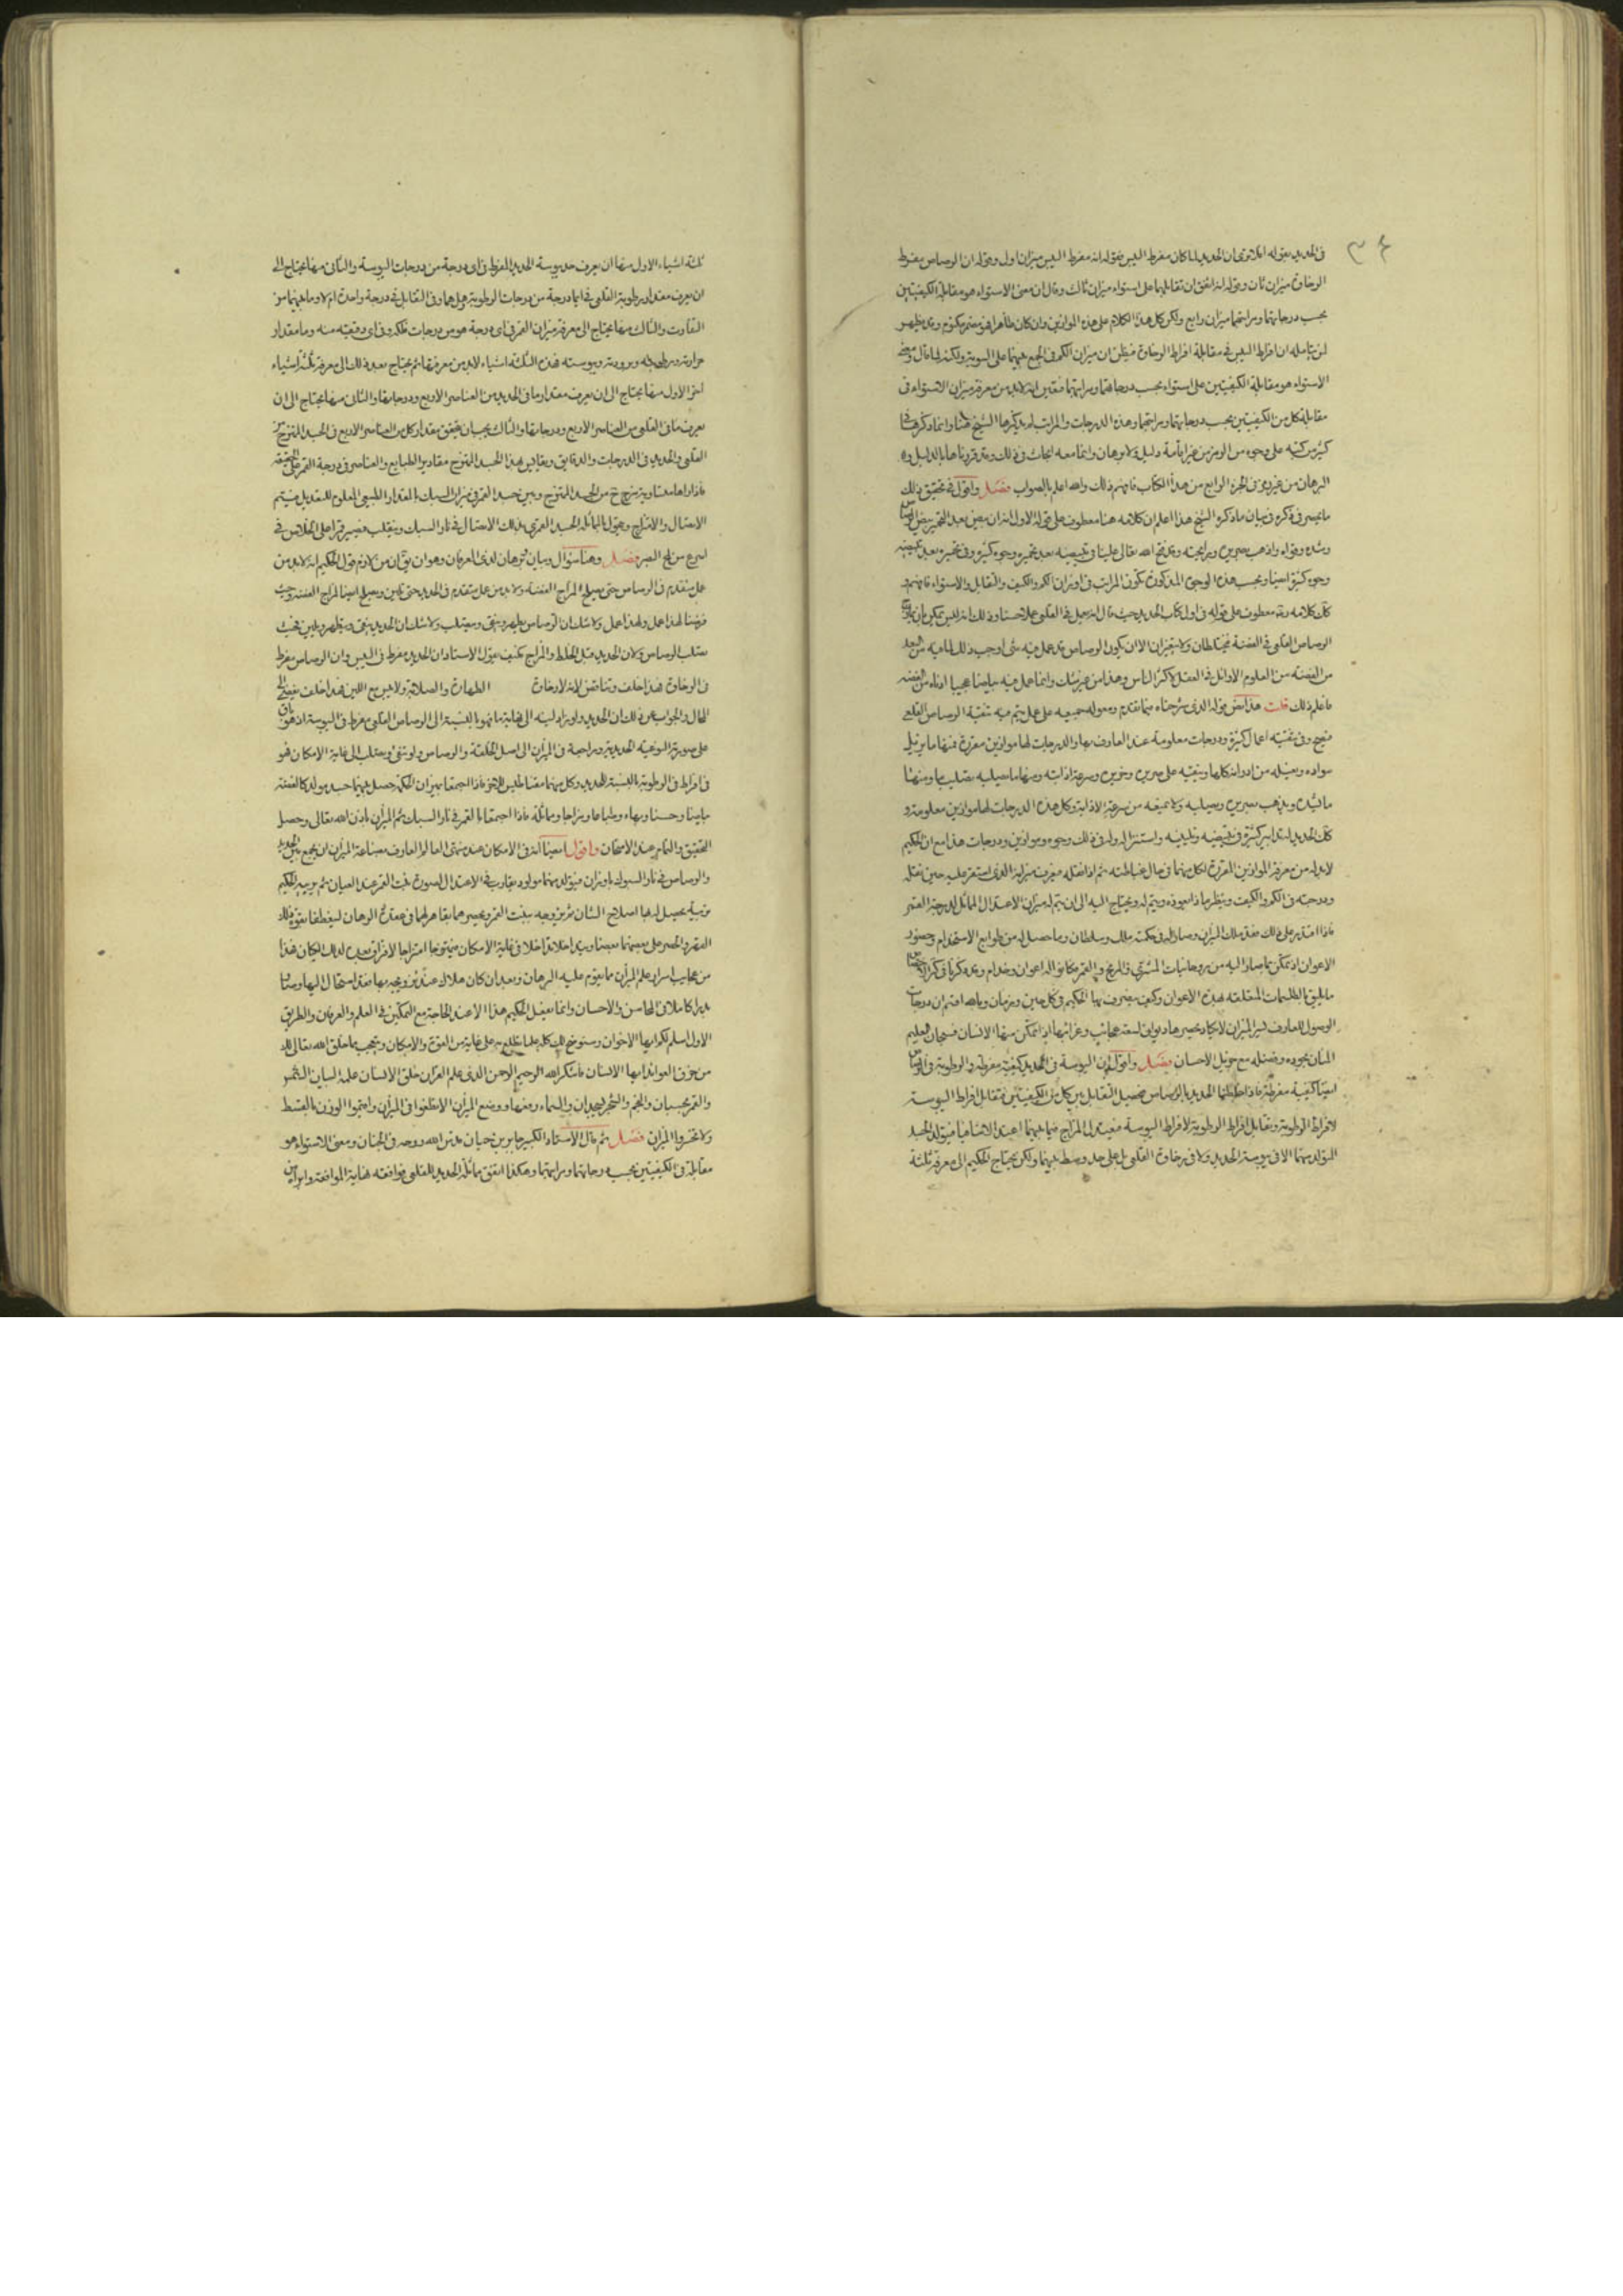 في الحديد بقوله الا ترى ان الحديد لما كان مفرط اليبس فقوله انه مفرط اليبس ميزان اول وقوله ان الرصاص مفرط
الرخاوة ميزان ثان وقوله انه اتفق ان تقابلهما على استواء ميزان ثالث وقال ان معنى الاستواء هو مقابلة الكيفيتين
بحسب درجاتهما ومراتبهما ميزان رابع ولكن كل هذا الكلام على هذه الموازين وان كان ظاهرا فهو مضمر مكتوم وقد يظهر
لمن يتامله ان افراط اليبس في مقابلة افراط الرخاوة فيظن ان ميزان الكم في الجمع بينهما على السوية ولكنه لما قال ومعنى
الاستواء هو مقابلة الكيفيتين على استواء بحسب درجاتهما ومراتبهما فتعين انه لا بد من معرفة ميزان الاستواء في
مقابلة كل من الكيفيتين بحسب درجاتهما ومراتبهما وهذه الدرجات والمراتب لم يذكرها الشيخ هنا وانما ذكرها في
كثير من كتبه على وجوه من الرمز من غير اقامة دليل ولا برهان وانما معه ابحاث في ذلك وقد قررناها بالدليل و
البرهان من في الجزء الرابع من هذا الكتاب فافهم ذلك والله اعلم بالصواب فصل واقول في تحقيق ذلك
ما تيسر في ذكره في بيان ما ذكره الشيخ هذا اعلم ان كلامه هنا معطوف على قوله الاول
وشده وقواه واذهب صريره ورايحته وقد فتح الله تعالى علينا في تبييضه بعد تحميره وجوه كثيرة وفي تحميره بعد تبييضه
وجوه كثيرة ايضا وبحسب هذه الوجوه المذكورة تكون المراتب في اوزان الكم والكيف والتقابل والاستواء فافهم
كان كلامه وقد معطوف على قوله في اول كتاب الحديد حيث قال انه يعمل في القلعي عملا حسنا وذلك انه ليس يمكن ان
الرصاص القلعي في الفضة فيختلطان ولا يتميزان الا ان يكون الرصاص قد عمل فيه شئ اوجب ذلك لما فيه من البعد
من الفضة من العلوم الاوائل في العقل لاكثر الناس وهذا من غير شك وانما عمل فيه بياضا عجيبا ادناه من الفضة
فاعلم ذلك قلت هذا نص قوله الذي شرحناه فيما تقدم ومعوله جميعه على عمل يتم فيه تنقية الرصاص القلعي
صحيح وفي تنقيته اعمال كثيرة ودرجات معلومة عند العارف بها والدرجات لها موازين مقررة فمنها ما يزيل
سواده ويغسله من ادرانه كلها وينقيه على صريره ونخيره وسرعة اذابته ومنها ما يصلبه تصليبا ومنها
ما يشده ويذهب بصريره ويصلبه ولا يمنعه من سرعة الاذابة وكل هذه الدرجات لها موازين معلومة و
كان الحديد له تدابير كثيرة في تبييضه وتليينه واستنزاله وله في ذلك وجوه وموازين ودرجات هذا مع ان الحكيم
لا بد له من معرفة الموازين المقررة لكل منهما في حال غباطته ثم اذا نقله فيعرف ميزانه الذي استقر عليه حين نقله
ودرجته في الكم والكيف وينظر ما ذا يعوزه ويتم له ويحتاج اليه الى ان يتم له ميزان الاعتدال المماثل لدرجة القمر
فاذا اقتدر على ذلك فقد ملك الميزان وصار له في حكمته ملك وسلطان وما حصل له من طوابع الاستخدام وحضور
الاعوان اذ تمكن بما صار اليه من روحانيات المشتري والمريخ والقمر فكانوا له اعوان وخدام وقد ذكرنا في
ما يليق بالطلسمات المتعلقة بهذه الاعوان وكيف يتصرف بها الحكيم في كل حين وزمان وبالله اقسم ان درجات
الوصول للعارف لسر الميزان لا يكاد يحصرها ديوان لسعة عجائب وغرائبها اذ تمكن منها الانسان فسبحان العليم
المنان بجوده وفضله مع جزيل الاحسان فصل واقول ان اليبوسة في الحديد كيفية مفرطة والرطوبة في الرصاص
ايضا كيفية مفرطة فاذا خلطنا الحديد بالرصاص فيحصل التقابل بين كل من الكيفيتين فتقابل افراط اليبوسة
لافراط الرطوبة وتقابل افراط الرطوبة لافراط اليبوسة فيعتدل المزاج فيما بينهما اعتدالا ثانيا فيتولد الجسد
المتولد منهما الا في يبوسة الحديد ولا في رخاوة القلعي بل على حد وسط بينهما ولكن يحتاج الحكيم الى معرفة ثلثة
ثلثة اشياء الاول منها ان يعرف حد يبوسة الحديد المفرط في اي درجة من درجات اليبوسة والثاني منها يحتاج الى
ان يعرف مقدار رطوبة القلعي في ايما درجة من درجات الرطوبة وهل هما في التقابل في درجة واحدة ام لا وما بينهما من
التفاوت والثالث منها يحتاج الى معرفة ميزان القمر في اي درجة هو من درجات فلكه وفي اي دقيقة منه وما مقدار
حرارته ورطوبته وبرودته ويبوسته فهذه الثلثة اشياء لا بد من معرفتها ثم يحتاج بعد ذلك الى معرفة ثلثة اشياء
اخر الاول منها يحتاج الى ان يعرف مقدار ما في الحديد من العناصر الاربع ودرجاتها والثاني منها يحتاج الى ان
يعرف ما في القلعي من العناصر الاربع ودرجاتها والثالث يجب ان يحقق مقدار كل من العناصر الاربع في الجسد الممتزج من
القلعي والحديد في الدرجات والدقايق ويقايس بهذا الجسد الممتزج مقادير الطبايع والعناصر في درجة القمر على الحقيقة
فاذا راها متساوية مزج من الجسد الممتزج وبين جسد القمر في نيران السبك بالمقدار الطبيعي المعلوم للتعديل فيتم
الاعتدال والامتزاج ويحول بالمماثلة الجسد القمري بذلك الاعتدال في نار السبك وينقلب فيصير قمرا على الخلاص في
اسرع من لمح البصر فصل وهنا سؤال وبيان برهان لذي العرفان وهو ان يقال ان من لازم قول الحكيم انه لا بد من
عمل متقدم في الرصاص حتى يبلغ المزاج الفضة ولا بد من عمل متقدم في الحديد حتى يلين ويبلغ ايضا المزاج الفضة وحيث
فرضنا لهذا عمل ولهذا عمل ولا شك ان الرصاص يطهر وينقى ويصلب ولا شك ان الحديد ينقى ويطهر ويلين فحيث
يصلب الرصاص ولان الحديد قبل الخلط والمزاج فكيف يقول الاستاد ان الحديد مفرط في اليبس وان الرصاص مفرط
في الرخاوة هذا خلف وتناقض لانه لا رخاوة الطهارة والصلابة ولا يبس مع اللين فهذا خلف
المحال والجواب عن ذلك ان الحديد ولو زاد لينه الى نهاية ما فهو بالنسبة الى الرصاص القلعي مفرط في اليبوسة اذ هو باق
على صورته النوعية الحديدية وراجعة في الميزان الى اصل الخلقة والرصاص ولو تنقى ويصلب الى غاية الامكان فهو
في افراط في الرطوبة بالنسبة للحديد وكل منهما مغناطيس للاخر فاذا اجتمعا بميزان الحكمة حصل بينهما جسد مولد كالفضة
بياضا وحسنا وبهاء وطباعا ومزاجا ومماثلة فاذا اجتمعا بالقمر في نار السبك تم الميزان باذن الله تعالى وحصل
التحقيق والتمام عند الامتحان واقول ايضا انه في الامكان عند منتهى العالم العارف بصناعة الميزان ان يجمع بين الحديد
والرصاص في نار السبوك باوزان فيتولد منهما مولود يقارب في الاعتدال لصورة بنت القمر عند العيان ثم يربيه الحكيم
تربية يحصل له بها اصلاح الشان ثم يزوجه ببنت القمر
من عجايب اسرار علم الميزان ما يقوم عليه البرهان وبعد ان كان هلالا
بدرا كاملا في المحاسن والاحسان وانما يفعل الحكيم هذا الا عند الحاجة مع التمكين في العلم والعرفان والطريق
الاول اسلم لكم ايها الاخوان وسنوضح لك كلما تطلع به على غاية من القوة والامكان ويتعجب مما خلق الله تعالى لك
من خرق العوائد ايها الانسان فاشكر الله الرحيم الرحمن الذي علم القران خلق الانسان علمه البيان الشمس
والقمر بحسبان والنجم والشجر يسجدان والسماء رفعها ووضع الميزان الا تطغوا في الميزان واقيموا الوزن بالقسط
ولا تخسروا الميزان فصل ثم قال الاستاد الكبير جابر بن حيان قدس الله روحه في الجنان ومعنى الاستواء هو
مقابلة في الكيفيتين بحسب درجاتهما ومراتبهما وهكذا اتفق مماثلة الحديد للقلعي فوافقه نهاية الموافقة